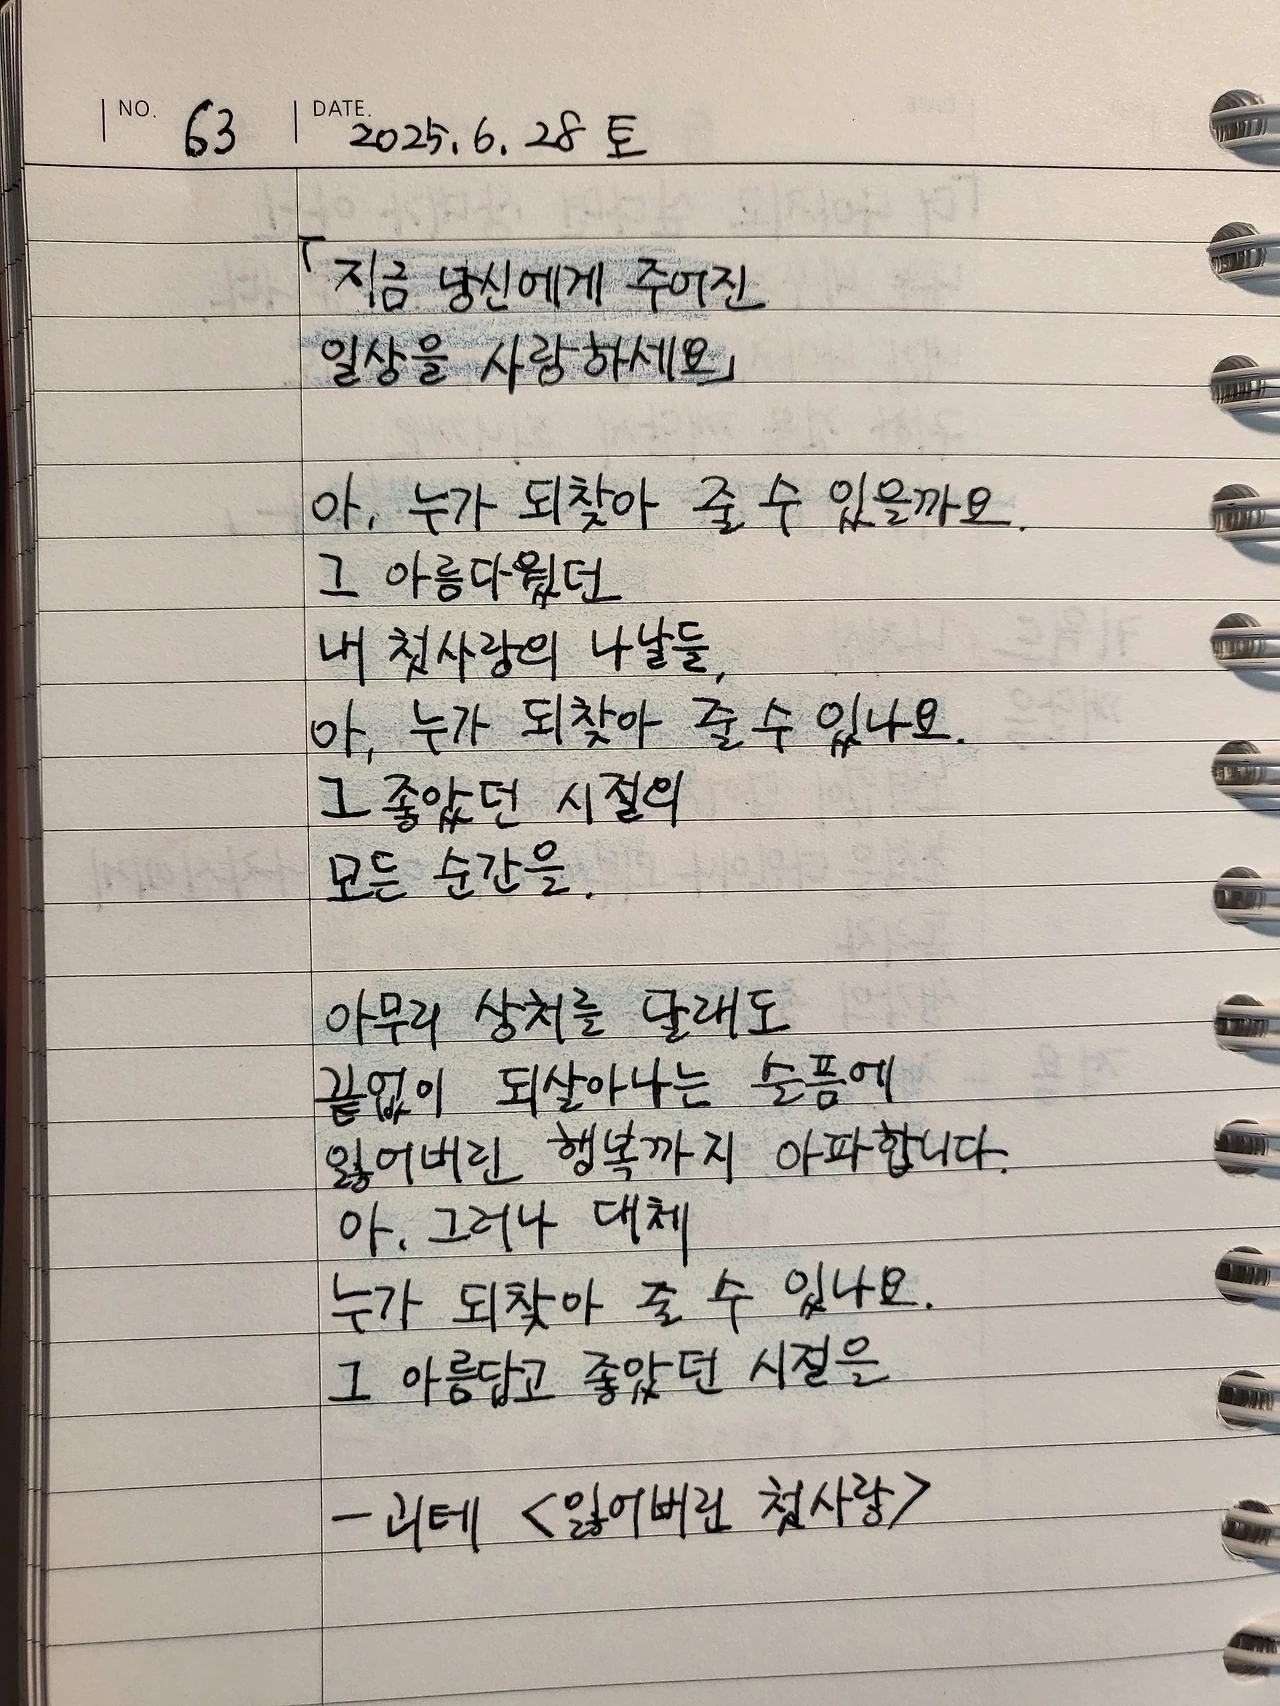 NO. 63 DATE. 2025. 6. 28 토
「지금 당신에게 주어진
일상을 사랑하세요」
아, 누가 되찾아 줄 수 있을까요.
그 아름다웠던
내 첫사랑의 나날들,
아, 누가 되찾아 줄 수 있나요.
그 좋았던 시절의
모든 순간을.
아무리 상처를 달래도
끝없이 되살아나는 슬픔에
잃어버린 행복까지 아파합니다.
아, 그러나 대체
누가 되찾아 줄 수 있나요.
그 아름답고 좋았던 시절을
- 괴테 <잃어버린 첫사랑>